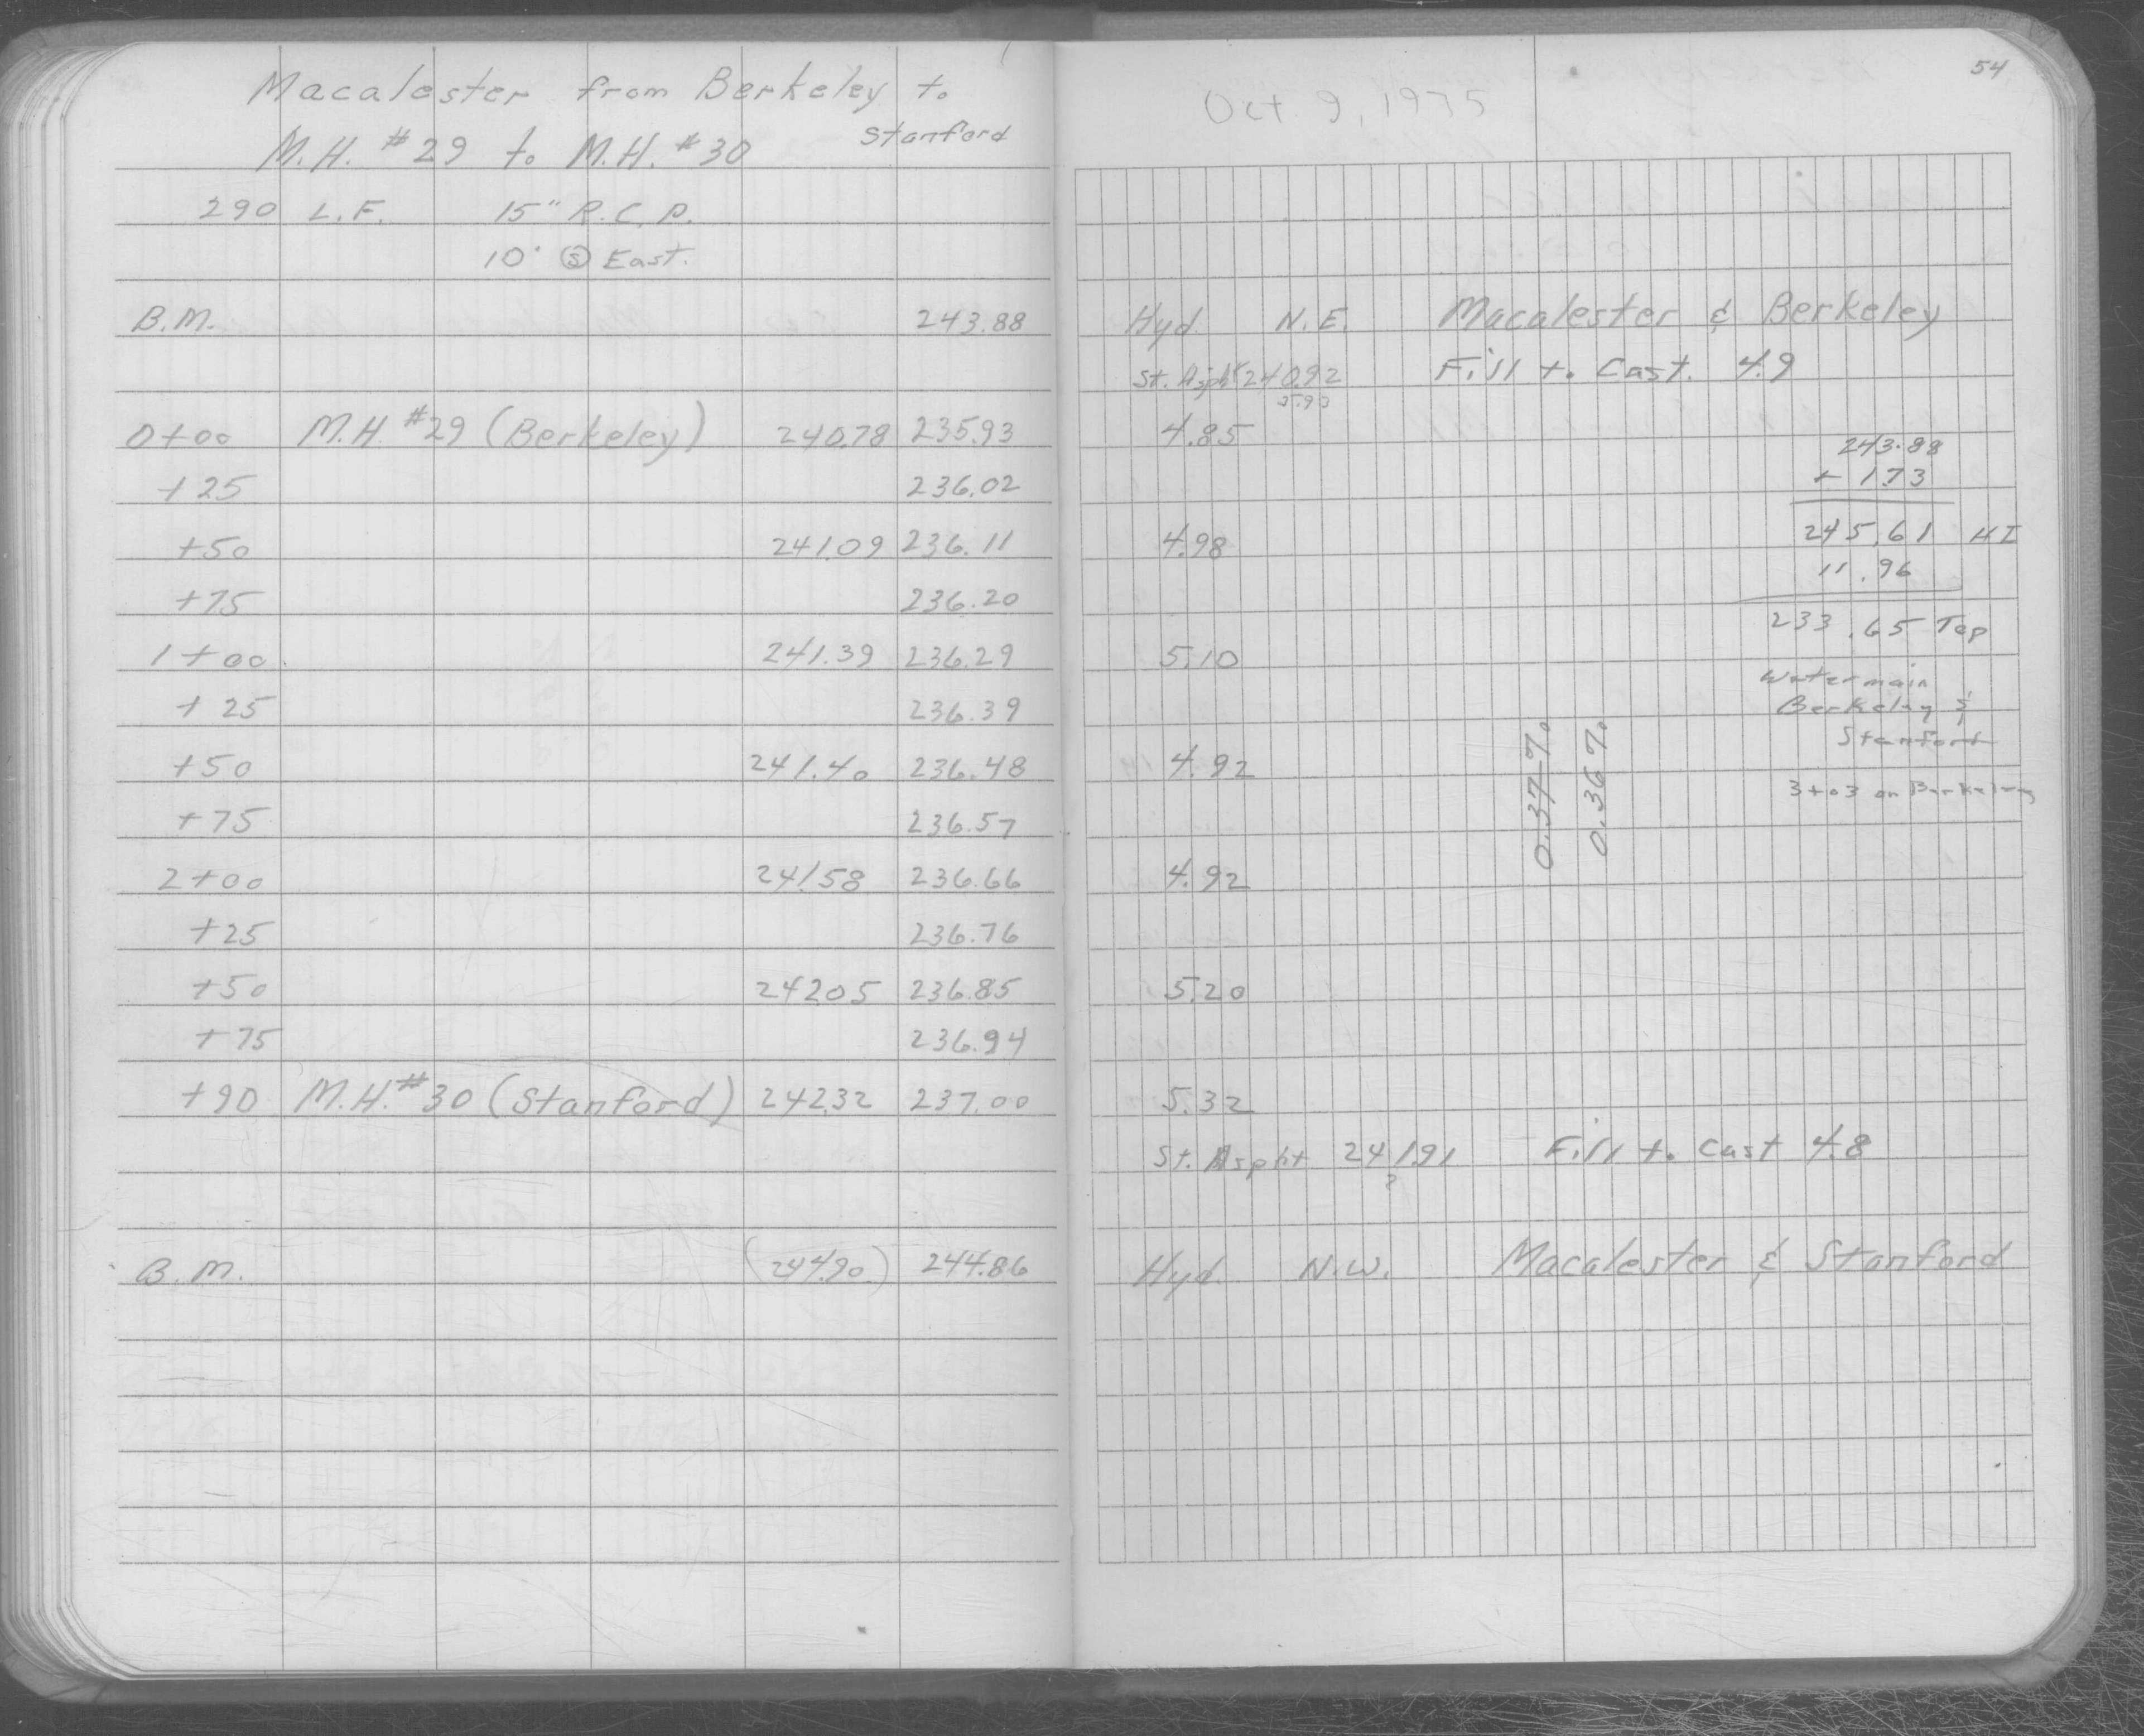 Macalester from Berkeley to
Stanford
M.H. #29 to M.H. #30
290 L.F. 15" R.C.P.
10' Ⓢ East.
B.M. 243.88
0+00 M.H. #29 (Berkeley) 240.78 235.93
+25 236.02
+50 241.09 236.11
+75 236.20
1+00 241.39 236.29
+25 236.39
+50 241.40 236.48
+75 236.57
2+00 241.58 236.66
+25 236.76
+50 242.05 236.85
+75 236.94
+90 M.H. #30 (Stanford) 242.32 237.00
B.M. (244.90) 244.86
54
Oct 9, 1975
Hyd N.E. Macalester & Berkeley
St. Asph't 240.92 Fill to Cast. 4.9
4.85
243.88
+ 1.73
4.98
245.61 HI
11.96
233.65 Top
5.10
Watermain
Berkeley &
Stanford
4.92
3+03 on Berkeley
0.37%
0.36%
4.92
5.20
5.32
St. Aspht 241.91 Fill to Cast 4.8
?
Hyd. N.W. Macalester & Stanford